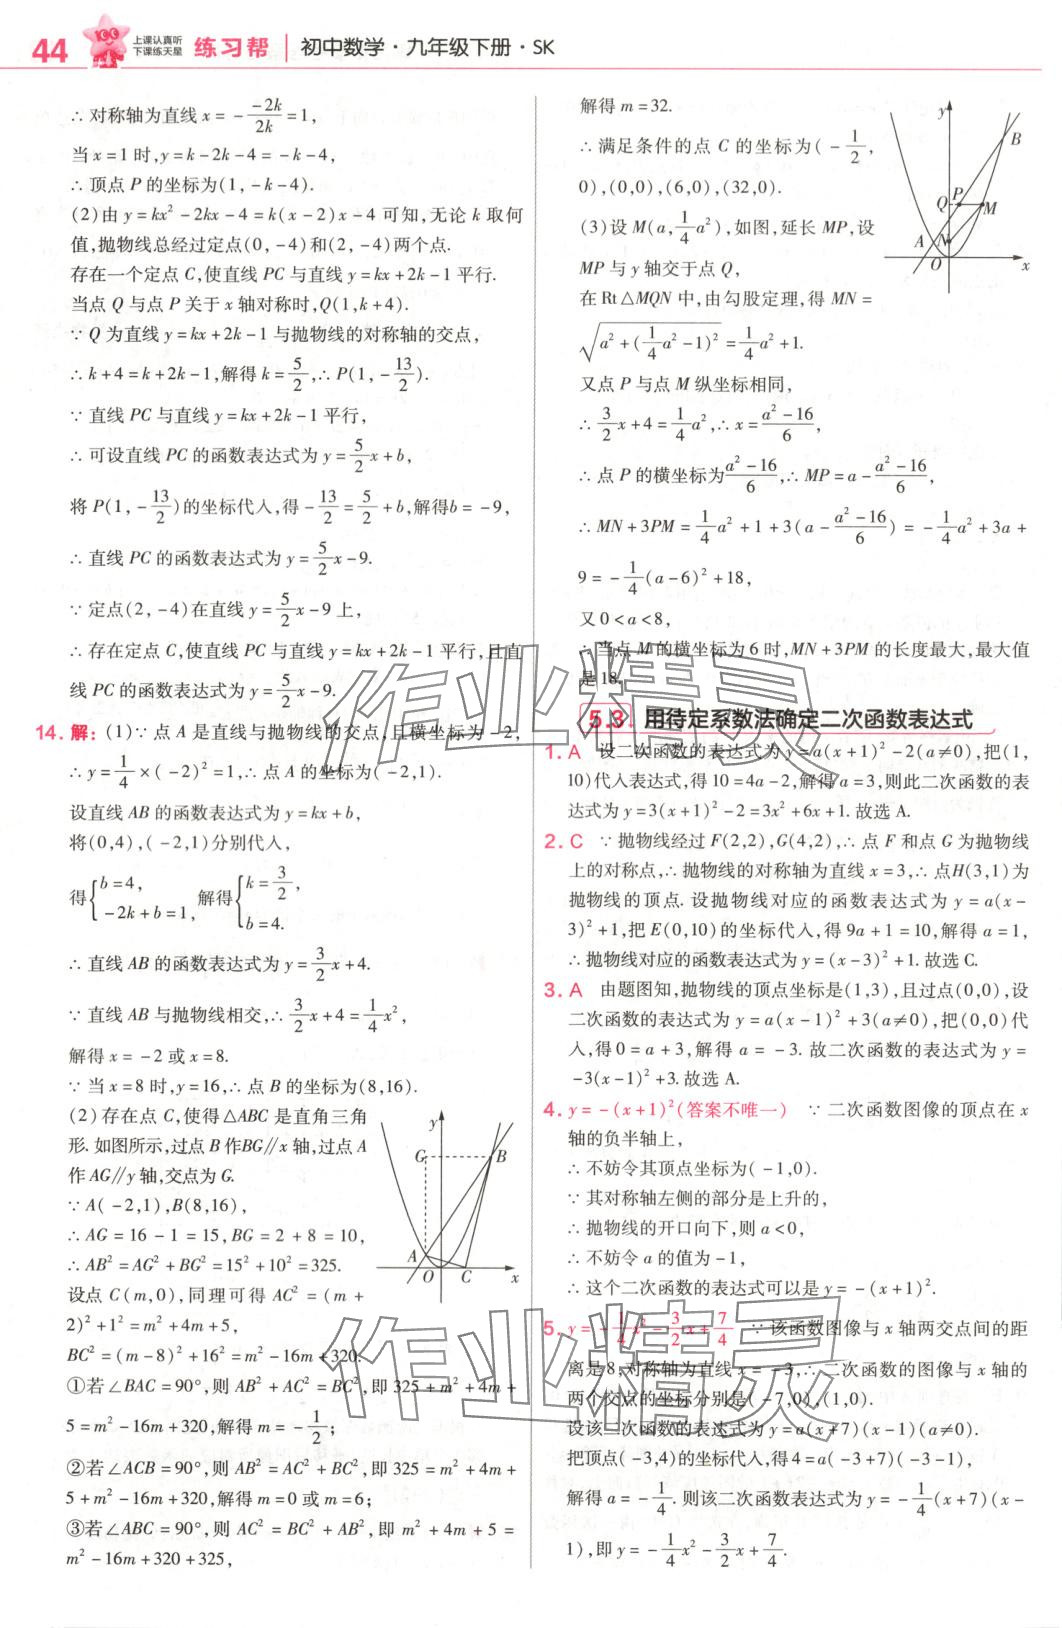 44
上课认真听
下课练天星
练习帮
初中数学·九年级下册·SK
∴对称轴为直线 x = -\frac{-2k}{2k} = 1,
当 x=1 时, y=k-2k-4=-k-4,
∴顶点 P 的坐标为(1, -k-4).
(2)由 y=kx²-2kx-4=k(x-2)x-4 可知,无论 k 取何
值,抛物线总经过定点(0, -4)和(2, -4)两个点.
存在一个定点 C,使直线 PC 与直线 y=kx+2k-1 平行.
当点 Q 与点 P 关于 x 轴对称时, Q(1,k+4).
∵ Q 为直线 y=kx+2k-1 与抛物线的对称轴的交点,
∴ k+4=k+2k-1,解得 k=\frac{5}{2},∴ P(1, -\frac{13}{2}).
∵直线 PC 与直线 y=kx+2k-1 平行,
∴可设直线 PC 的函数表达式为 y=\frac{5}{2}x+b,
将 P(1, -\frac{13}{2})的坐标代入,得 -\frac{13}{2}=\frac{5}{2}+b,解得b=-9,
∴直线 PC 的函数表达式为 y=\frac{5}{2}x-9.
∵定点(2, -4)在直线 y=\frac{5}{2}x-9 上,
∴存在定点 C,使直线 PC 与直线 y=kx+2k-1 平行,且直
线 PC 的函数表达式为 y=\frac{5}{2}x-9.
14. 解: (1)∵点 A 是直线与抛物线的交点,且横坐标为 -2,
∴ y=\frac{1}{4}×(-2)²=1,∴点 A 的坐标为(-2,1).
设直线 AB 的函数表达式为 y=kx+b,
将(0,4),(-2,1)分别代入,
得{b=4, -2k+b=1, 解得{k=\frac{3}{2}, b=4.
∴直线 AB 的函数表达式为 y=\frac{3}{2}x+4.
∵直线 AB 与抛物线相交,∴\frac{3}{2}x+4=\frac{1}{4}x²,
解得 x=-2 或 x=8.
∵当 x=8 时, y=16,∴点 B 的坐标为(8,16).
(2)存在点 C,使得△ABC 是直角三角
形. 如图所示,过点 B 作BG∥x 轴,过点 A
作 AG∥y 轴,交点为 G.
∵ A(-2,1),B(8,16),
∴ AG=16-1=15,BG=2+8=10,
∴ AB²=AG²+BG²=15²+10²=325.
设点 C(m,0),同理可得 AC²=(m+
2)²+1²=m²+4m+5,
BC²=(m-8)²+16²=m²-16m+320.
①若∠BAC=90°,则 AB²+AC²=BC²,即 325+m²+4m+
5=m²-16m+320,解得 m=-\frac{1}{2};
②若∠ACB=90°,则 AB²=AC²+BC²,即 325=m²+4m+
5+m²-16m+320,解得 m=0 或 m=6;
③若∠ABC=90°,则 AC²=BC²+AB²,即 m²+4m+5=
m²-16m+320+325,
y
G
B
A
O
C
x
解得 m=32.
∴满足条件的点 C 的坐标为(-\frac{1}{2},
0),(0,0),(6,0),(32,0).
(3)设 M(a,\frac{1}{4}a²),如图,延长 MP,设
MP 与 y 轴交于点 Q,
在 Rt△MQN 中,由勾股定理,得 MN=
\sqrt{a²+(\frac{1}{4}a²-1)²}=\frac{1}{4}a²+1.
y
B
Q
P
M
A
N
O
x
又点 P 与点 M 纵坐标相同,
∴\frac{3}{2}x+4=\frac{1}{4}a²,∴ x=\frac{a²-16}{6},
∴点 P 的横坐标为\frac{a²-16}{6},∴ MP=a-\frac{a²-16}{6},
∴ MN+3PM=\frac{1}{4}a²+1+3(a-\frac{a²-16}{6})=-\frac{1}{4}a²+3a+
9=-\frac{1}{4}(a-6)²+18,
又 0<a<8,
∴当点 M 的横坐标为 6 时, MN+3PM 的长度最大,最大值
是 18.
5.3 用待定系数法确定二次函数表达式
1. A 设二次函数的表达式为 y=a(x+1)²-2(a≠0),把(1,
10)代入表达式,得 10=4a-2,解得 a=3,则此二次函数的表
达式为 y=3(x+1)²-2=3x²+6x+1. 故选 A.
2. C ∵抛物线经过 F(2,2),G(4,2),∴点 F 和点 G 为抛物线
上的对称点,∴抛物线的对称轴为直线 x=3,∴点H(3,1)为
抛物线的顶点. 设抛物线对应的函数表达式为 y=a(x-
3)²+1,把 E(0,10)的坐标代入,得 9a+1=10,解得 a=1,
∴抛物线对应的函数表达式为 y=(x-3)²+1. 故选 C.
3. A 由题图知,抛物线的顶点坐标是(1,3),且过点(0,0),设
二次函数的表达式为 y=a(x-1)²+3(a≠0),把(0,0)代
入,得 0=a+3,解得 a=-3. 故二次函数的表达式为 y=
-3(x-1)²+3. 故选 A.
4. y=-(x+1)²(答案不唯一) ∵二次函数图像的顶点在 x
轴的负半轴上,
∴不妨令其顶点坐标为(-1,0).
∵其对称轴左侧的部分是上升的,
∴抛物线的开口向下,则 a<0,
∴不妨令 a 的值为 -1,
∴这个二次函数的表达式可以是 y=-(x+1)².
5. y=-\frac{1}{4}x²-\frac{3}{2}x+\frac{7}{4} ∵该函数图像与 x 轴两交点间的距
离是 8,对称轴为直线 x=-3,∴二次函数的图像与 x 轴的
两个交点的坐标分别是(-7,0),(1,0).
设该二次函数的表达式为 y=a(x+7)(x-1)(a≠0).
把顶点(-3,4)的坐标代入,得 4=a(-3+7)(-3-1),
解得 a=-\frac{1}{4}. 则该二次函数表达式为 y=-\frac{1}{4}(x+7)(x-
1),即 y=-\frac{1}{4}x²-\frac{3}{2}x+\frac{7}{4}.
作业精灵
作业精灵